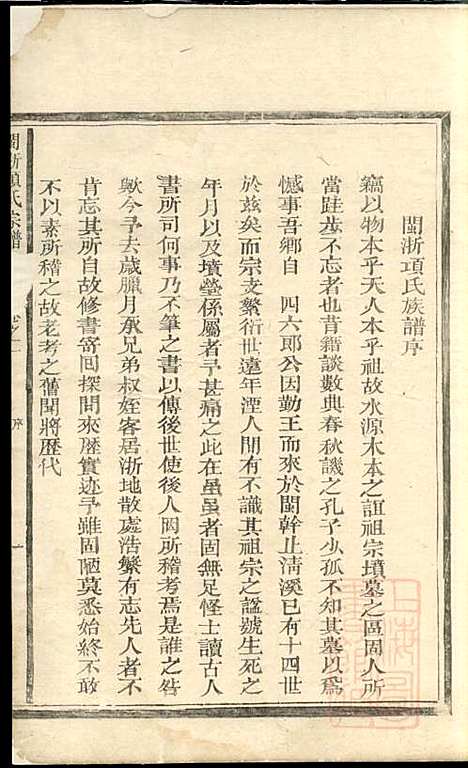 閩浙項氏族譜序
竊以物本乎天人本乎祖故水源木本之誼祖宗墳墓之區固人所
當跬步不忘者也昔籍談數典春秋譏之孔子少孤不知其墓以為
憾事吾鄉自 四六郎公因勤王而來於閩幹止清溪已有十四世
於兹矣而宗支繁衍世遠年湮人間有不識其祖宗之諡號生死之
年月以及墳塋係屬者予甚痛之此在虽虽者固無足怪士讀古人
書所司何事乃不筆之書以傳後世使後人罔所稽考焉是誰之咎
歟今予去歲臘月承兄弟叔姪客居浙地散處浩繁有志先人者不
肯忘其所自故修書寄回探問來歷實迹予雖固陋莫悉始終不敢
不以素所稽之故老考之舊聞將歷代
閩浙項氏宗譜
序
一